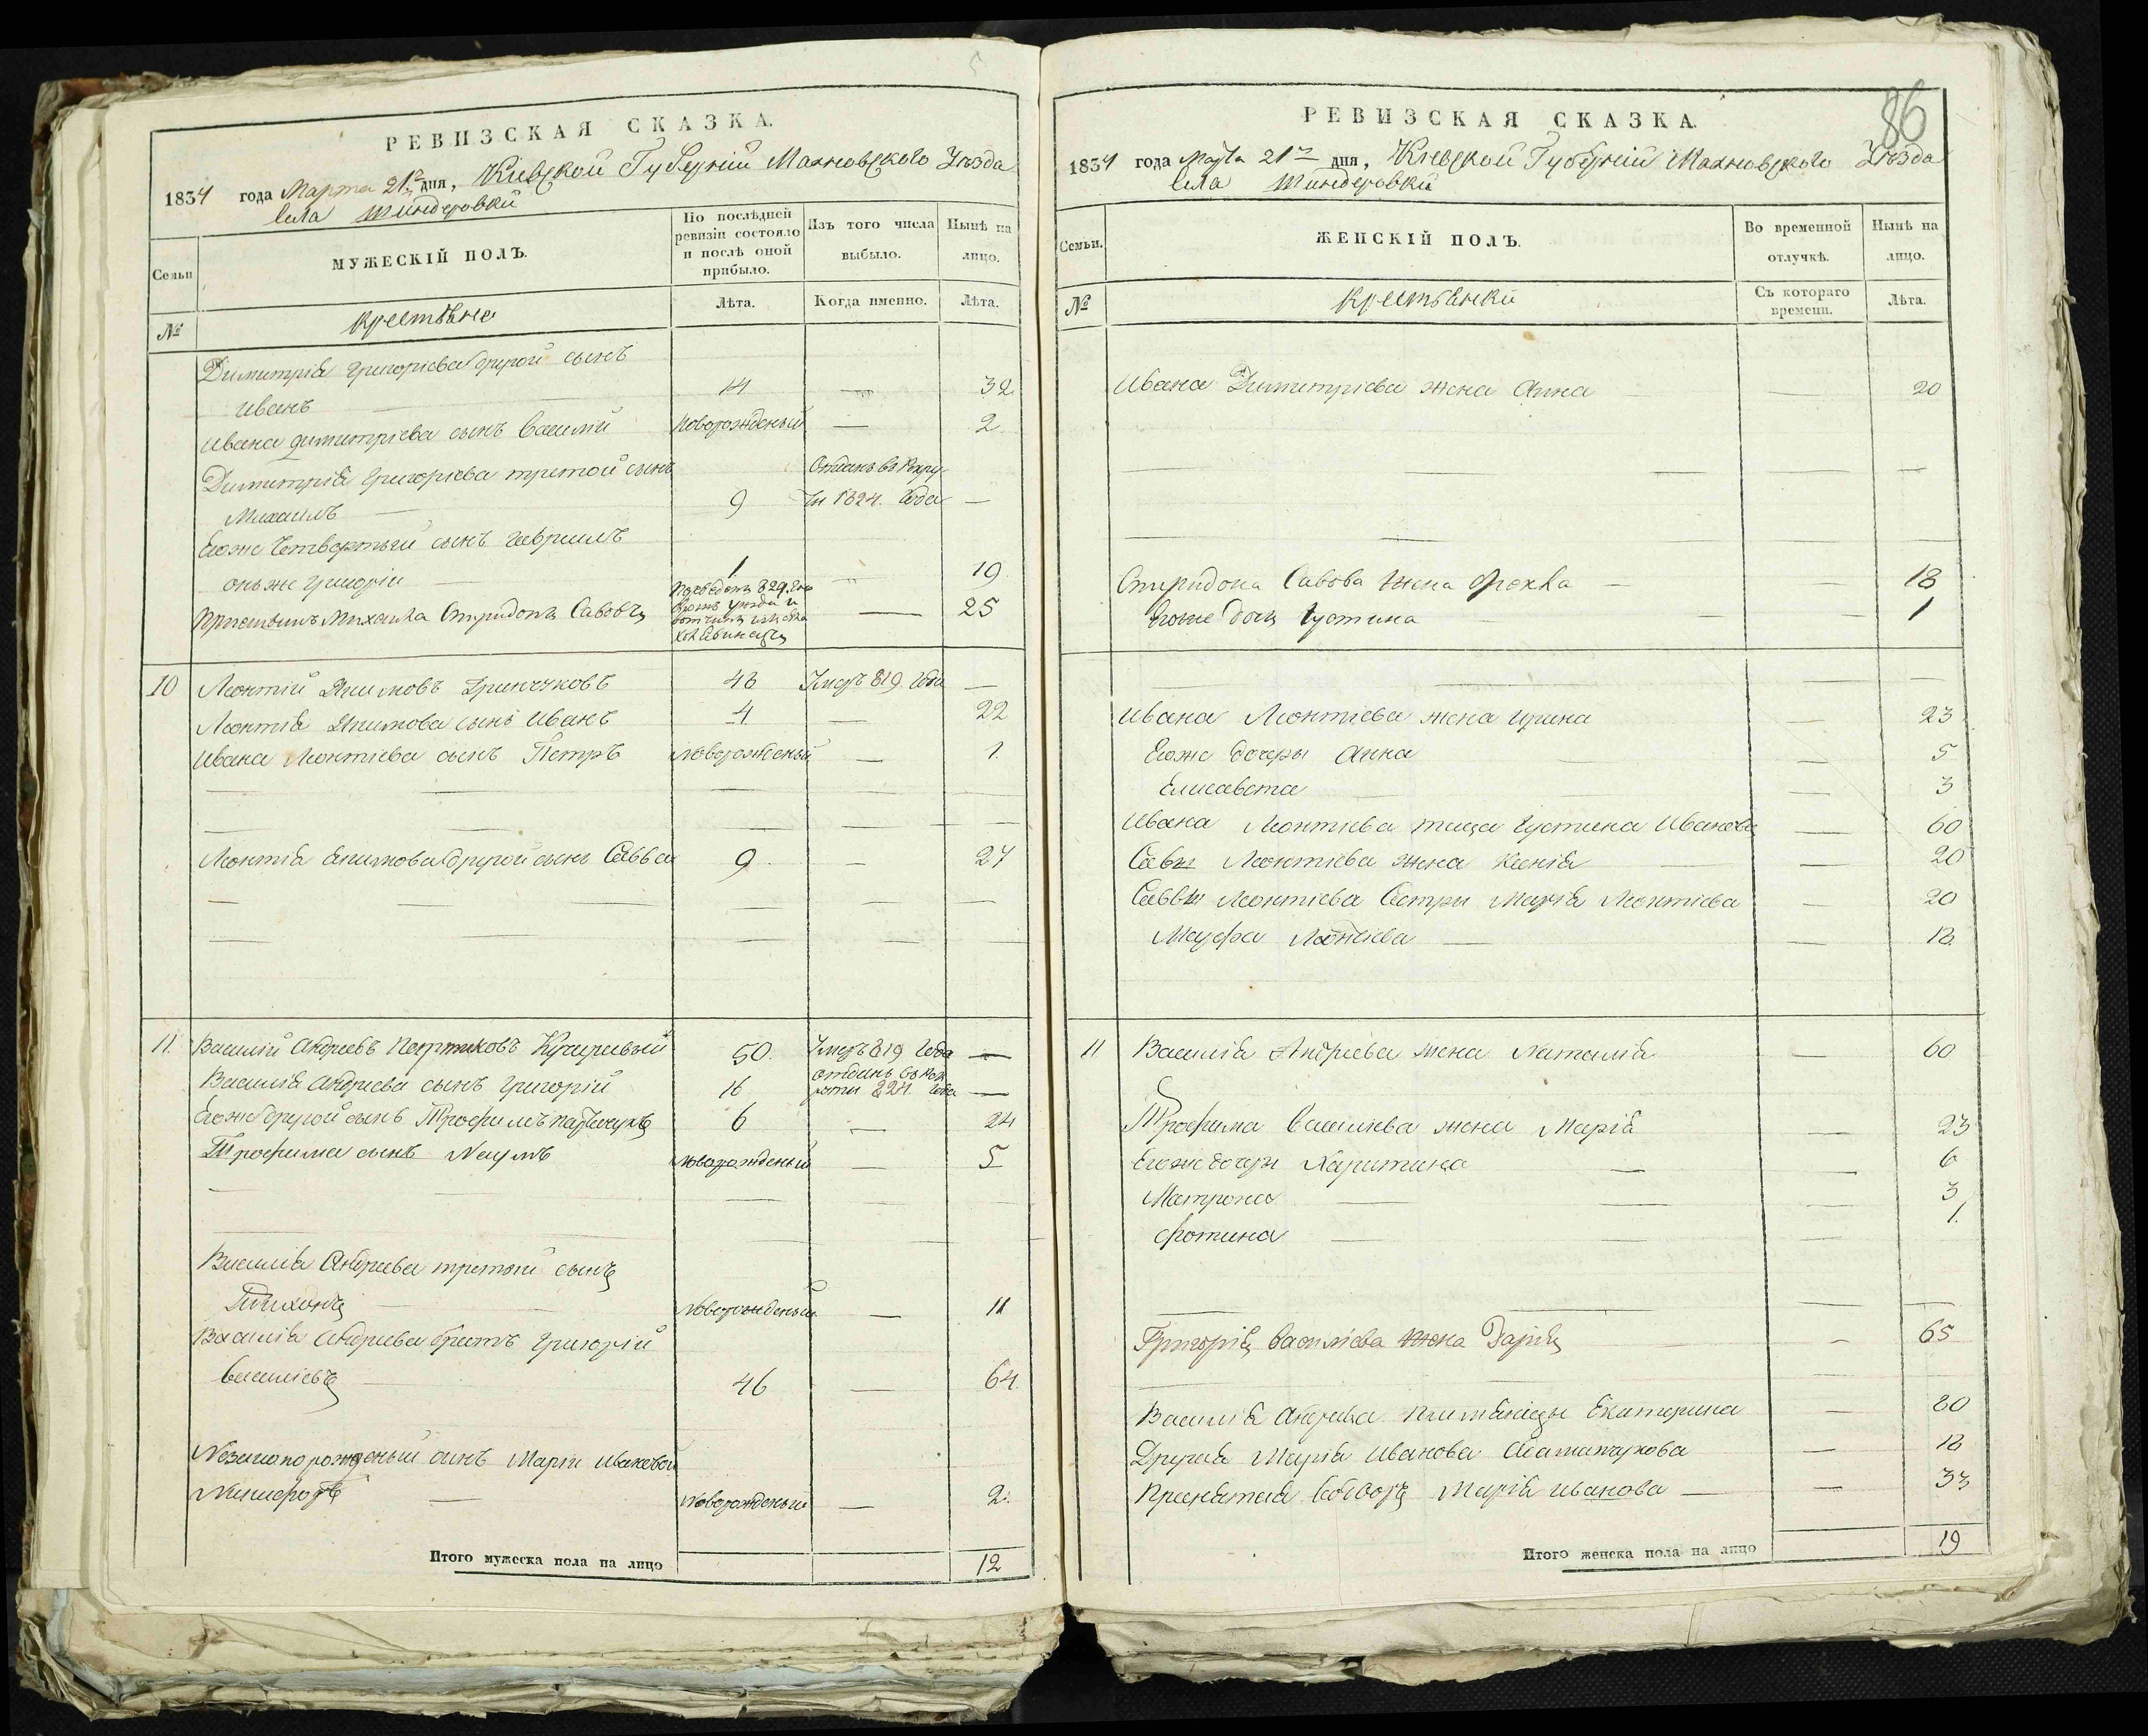 РЕВИЗСКАЯ СКАЗКА.
1834 года Марта 21го дня, Кіевской Губерніи Махновского Уѣзда
села Жиндеровки
Семьи
МУЖЕСКІЙ ПОЛЪ.
По послѣдней ревизіи состояло и послѣ оной прибыло.
Изъ того числа выбыло.
Нынѣ на лицо.
№
крестьяне
Лѣта.
Когда именно.
Лѣта.
Димитрія Григоріева другой сынъ
Иванъ — 14 — 32
Ивана димитріева сынъ Василій новорожденый — 2
Димитрія Григоріева третой сынъ
Михаилъ — 9 Отданъ въ Рекру-
ты 1824. года —
Егоже Четвертый сынъ Гаврилъ
онъже Григорій — 1 — 19
Михаила Спиридонъ Савовъ 829. — 25
10 Леонтій Якимовъ Гринчуковъ 48 Умеръ 819. года —
Леонтія Якимова сынъ Иванъ 4 — 22
Ивана Леонтіева сынъ Петръ новорожденый — 1.
Леонтія Якимова другой сынъ Савва 9. — 27
11. Василій Андреевъ Кучирявый 50. Умеръ 819 года —
Василія Андреева сынъ Григорій 16 отданъ въ Рек
руты 824. года —
Егоже другой сынъ Трофимъ 6 — 24
Трофима сынъ Наумъ новорожденый — 5
Василія Андреева третій сынъ
Тихонъ — новорожденый — 11
Василія Андреева братъ Григорій
Василіевъ — 46 — 64.
Незаконорожденый сынъ Маріи Ивановой
Никифоръ — новорожденый — 2.
Итого мужеска пола на лицо 12
86
РЕВИЗСКАЯ СКАЗКА.
1834 года Марта 21го дня, Кіевской Губерніи Махновского Уѣзда
села Жиндеровки
Семьи.
ЖЕНСКІЙ ПОЛЪ.
Во временной отлучкѣ.
Нынѣ на лицо.
№
крестьянки
Съ котораго времени.
Лѣта.
Ивана Димитріева жена Анна — 20
Спиридона Савова жена Фекла — 18
Егоже дочь Іустина — 1
Ивана Леонтіева жена Ирина — 23
Егоже дочери Анна — 5
Елисавета — 3
Ивана Леонтіева теща Іустина Иванова — 60
Савы Леонтіева жена Ксенія — 20
Саввы Леонтіева Сестры Марія Леонтіева — 20
Марфа Леонтіева — 18
11 Василія Андреева жена Наталія — 60
Трофима Василіева жена Марія — 23
Егоже дочери Харитина — 6
Матрона — 3
Фотина — 1.
Григорія Василіева жена Дарія — 65
Василія Андреева племяницы Екатерина — 20
Другая Марія Иванова — 18
Принятая Марія Иванова — 33
Итого женска пола на лицо 19